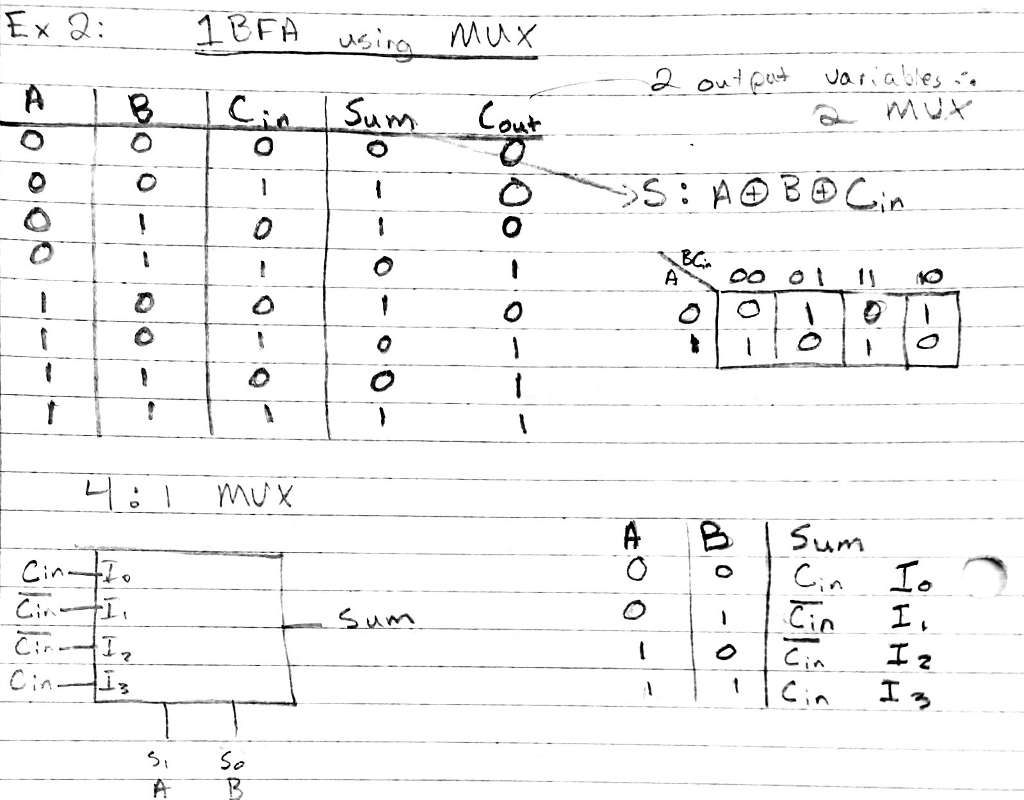 Ex 2: 1BFA using MUX
2 output variables ∴
2 MUX
A B Cin Sum Cout
0 0 0 0 0
0 0 1 1 0
0 1 0 1 0
0 1 1 0 1
1 0 0 1 0
1 0 1 0 1
1 1 0 0 1
1 1 1 1 1
S: A⊕B⊕Cin
A BCin 00 01 11 10
0 0 1 0 1
1 1 0 1 0
4:1 MUX
Cin I0
C̅i̅n̅ I1
C̅i̅n̅ I2
Cin I3
Sum
S1 S0
A B
A B Sum
0 0 Cin I0
0 1 C̅i̅n̅ I1
1 0 C̅i̅n̅ I2
1 1 Cin I3